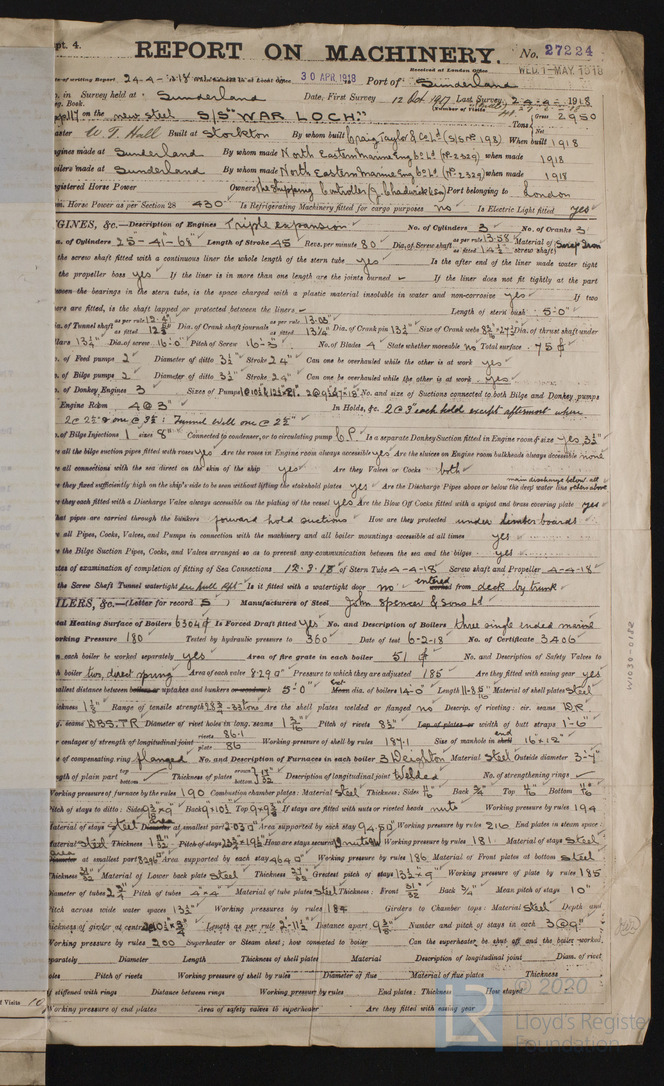 pt. 4.
REPORT ON MACHINERY. No. 27224
Received at London Office WED. 1 - MAY. 1918
of writing Report 24-4-1918 30 APR. 1918 Port of Sunderland
in Survey held at Sunderland Date, First Survey 12 Oct 1917 Last Survey 24-4-1918
Book. (Number of Visits
on the new steel S/S "WAR LOCH" Tons Gross 2950
Net
W. T. Hall Built at Stockton By whom built Craig Taylor & Co Ld (S/S No 198) When built 1918
Engines made at Sunderland By whom made North Eastern Marine Eng Co Ld (No 2329) when made 1918
Boilers made at Sunderland By whom made North Eastern Marine Eng Co Ld (No 2329) when made 1918
Registered Horse Power Owners The Shipping Controller (J. Chadwick & Co) Port belonging to London
Horse Power as per Section 28 430 Is Refrigerating Machinery fitted for cargo purposes no Is Electric Light fitted yes
GINES, &c.—Description of Engines Triple expansion No. of Cylinders 3 No. of Cranks 3
of Cylinders 25-41-68 Length of Stroke 45 Revs. per minute 80 Dia. of Screw shaft as per rule 13.58 as fitted 14 1/2 Material of screw shaft Scrap Iron
the screw shaft fitted with a continuous liner the whole length of the stern tube yes Is the after end of the liner made water tight
the propeller boss yes If the liner is in more than one length are the joints burned If the liner does not fit tightly at the part
between the bearings in the stern tube, is the space charged with a plastic material insoluble in water and non-corrosive yes If two
are fitted, is the shaft lapped or protected between the liners Length of stern bush 5-0"
of Tunnel shaft as per rule as fitted Dia. of Crank shaft journals as per rule 13.03 as fitted 13 1/4 Dia. of Crank pin 13 1/2 Size of Crank webs Dia. of thrust shaft under
collars 13 1/4 Dia. of screw 16-0 Pitch of Screw 16-3 No. of Blades 4 State whether moveable no Total surface 75
of Feed pumps 2 Diameter of ditto 3 1/2 Stroke 24" Can one be overhauled while the other is at work yes
of Bilge pumps 2 Diameter of ditto 3 1/2 Stroke 24" Can one be overhauled while the other is at work yes
of Donkey Engines 3 Sizes of Pumps No. and size of Suctions connected to both Bilge and Donkey pumps
Engine Room 4 @ 3" In Holds, &c. 2 @ 3" each hold except aftermost where
2 @ 2 1/2" & one @ 3 1/2: Tunnel well one @ 2 1/2"
of Bilge Injections 1 sizes 8" Connected to condenser, or to circulating pump C.P. Is a separate Donkey Suction fitted in Engine room & size yes 3 1/2
all the bilge suction pipes fitted with roses yes Are the roses in Engine room always accessible yes Are the sluices on Engine room bulkheads always accessible none
all connections with the sea direct on the skin of the ship yes Are they Valves or Cocks both
main discharge below, all
they fixed sufficiently high on the ship's side to be seen without lifting the stokehold plates yes Are the Discharge Pipes above or below the deep water line others above
they each fitted with a Discharge Valve always accessible on the plating of the vessel yes Are the Blow Off Cocks fitted with a spigot and brass covering plate yes
What pipes are carried through the bunkers forward hold suctions How are they protected under limber boards
all Pipes, Cocks, Valves, and Pumps in connection with the machinery and all boiler mountings accessible at all times yes
the Bilge Suction Pipes, Cocks, and Valves arranged so as to prevent any communication between the sea and the bilges yes
of examination of completion of fitting of Sea Connections 12-3-18 of Stern Tube 4-4-18 Screw shaft and Propeller 4-4-18
the Screw Shaft Tunnel watertight see hull Rpt Is it fitted with a watertight door no entered from deck by trunk
ILERS, &c.—(Letter for record S) Manufacturers of Steel John Spencer & Sons Ld
Total Heating Surface of Boilers 6304 Is Forced Draft fitted yes No. and Description of Boilers three single ended marine
Working Pressure 180 Tested by hydraulic pressure to 360 Date of test 6-2-18 No. of Certificate 3406
each boiler be worked separately yes Area of fire grate in each boiler 51 No. and Description of Safety Valves to
boiler two, direct spring Area of each valve 8.290" Pressure to which they are adjusted 185 Are they fitted with easing gear yes
Smallest distance between uptakes and bunkers 5-0" dia. of boilers 14-0 Length 11-8 5/16 Material of shell plates Steel
Thickness 1 1/8 Range of tensile strength Are the shell plates welded or flanged no Descrip. of riveting: cir. seams D.R.
seams D.B.S.T.R. Diameter of rivet holes in long. seams 1 3/16 Pitch of rivets 8 1/2 Lap of plates or width of butt straps 1-6"
Per centages of strength of longitudinal joint rivets 86.1 plate 86 Working pressure of shell by rules 187.1 Size of manhole in end 16 x 12
of compensating ring flanged No. and Description of Furnaces in each boiler 3 Deighton Material Steel Outside diameter 3-4
Length of plain part top bottom Thickness of plates crown bottom Description of longitudinal joint Welded No. of strengthening rings
Working pressure of furnace by the rules 190 Combustion chamber plates: Material Steel Thickness: Sides Back Top Bottom
Pitch of stays to ditto: Sides Back Top If stays are fitted with nuts or riveted heads nuts Working pressure by rules 194
Material of stays Steel area at smallest part 2.030" Area supported by each stay 94.50" Working pressure by rules 216 End plates in steam space:
Material Steel Thickness Pitch of stays How are stays secured Working pressure by rules 181 Material of stays Steel
area at smallest part Area supported by each stay 4640" Working pressure by rules 186 Material of Front plates at bottom Steel
Thickness Material of Lower back plate Steel Thickness Greatest pitch of stays 13 1/2 x 9 Working pressure of plate by rules 185
Diameter of tubes 2 3/4 Pitch of tubes 4" x 4" Material of tube plates Steel Thickness: Front 31/32 Back 3/4" Mean pitch of stays 10"
Pitch across wide water spaces 13 1/2 Working pressures by rules 184 Girders to Chamber tops: Material Steel Depth and
thickness of girder at centre Length as per rule 2-11 1/2 Distance apart 9 3/8 Number and pitch of stays in each 3 @ 9"
Working pressure by rules 200 Superheater or Steam chest; how connected to boiler Can the superheater be shut off and the boiler worked
separately Diameter Length Thickness of shell plates Material Description of longitudinal joint Diam. of rivet
holes Pitch of rivets Working pressure of shell by rules Diameter of flue Material of flue plates Thickness
If stiffened with rings Distance between rings Working pressure by rules End plates: Thickness How stayed
Working pressure of end plates Area of safety valves to superheater Are they fitted with easing gear
of Visits
W1030-0182
LR © 2020
Lloyd's Register
Foundation